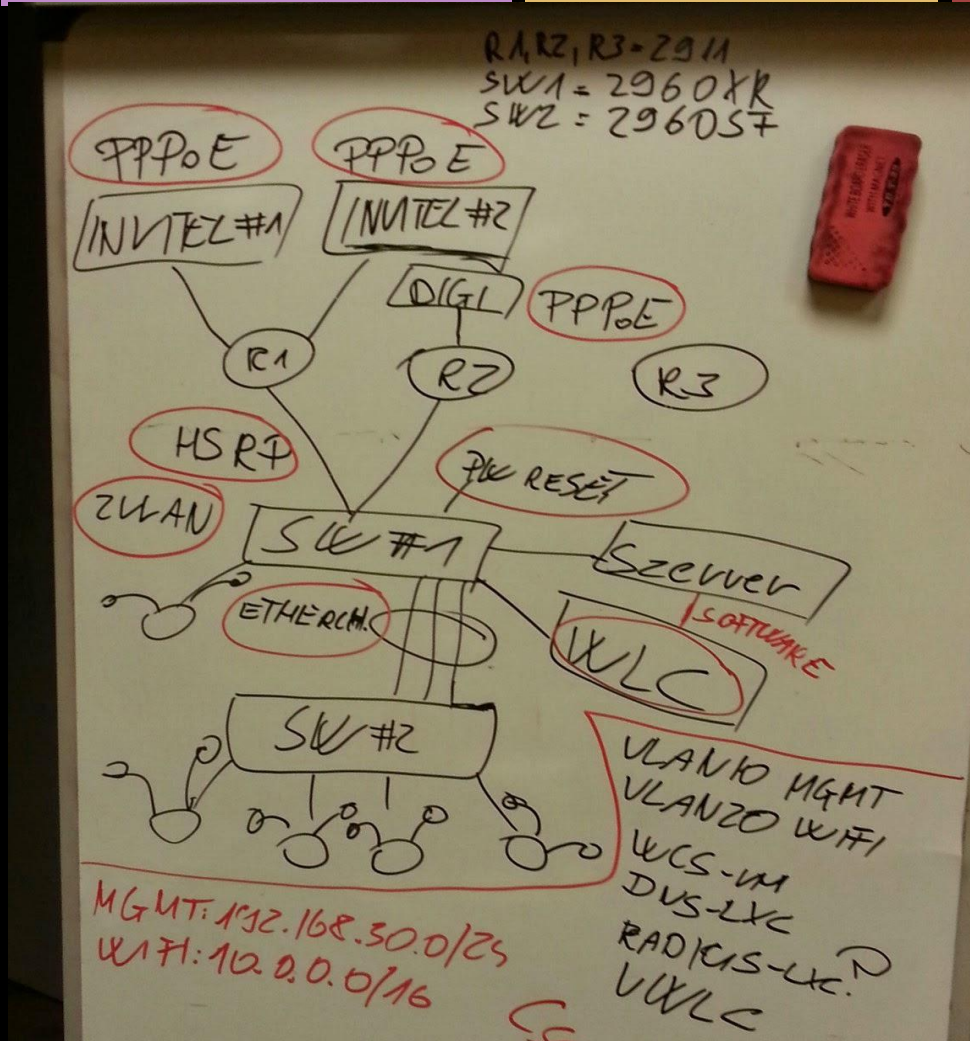 R1, R2, R3 = 2911
SW1 = 2960XR
SW2 = 2960SF
PPPoE
PPPoE
INVITEL #1
INVITEL #2
DIGI
PPPoE
R1
R2
R3
HSRP
PW RESET
2VLAN
SW #1
Szerver
SOFTWARE
ETHERCH.
WLC
SW #2
VLAN10 MGMT
VLAN20 WIFI
WCS-VM
DNS-LXC
RADIUS-LXC?
VWLC
MGMT: 192.168.30.0/25
WIFI: 10.0.0.0/16